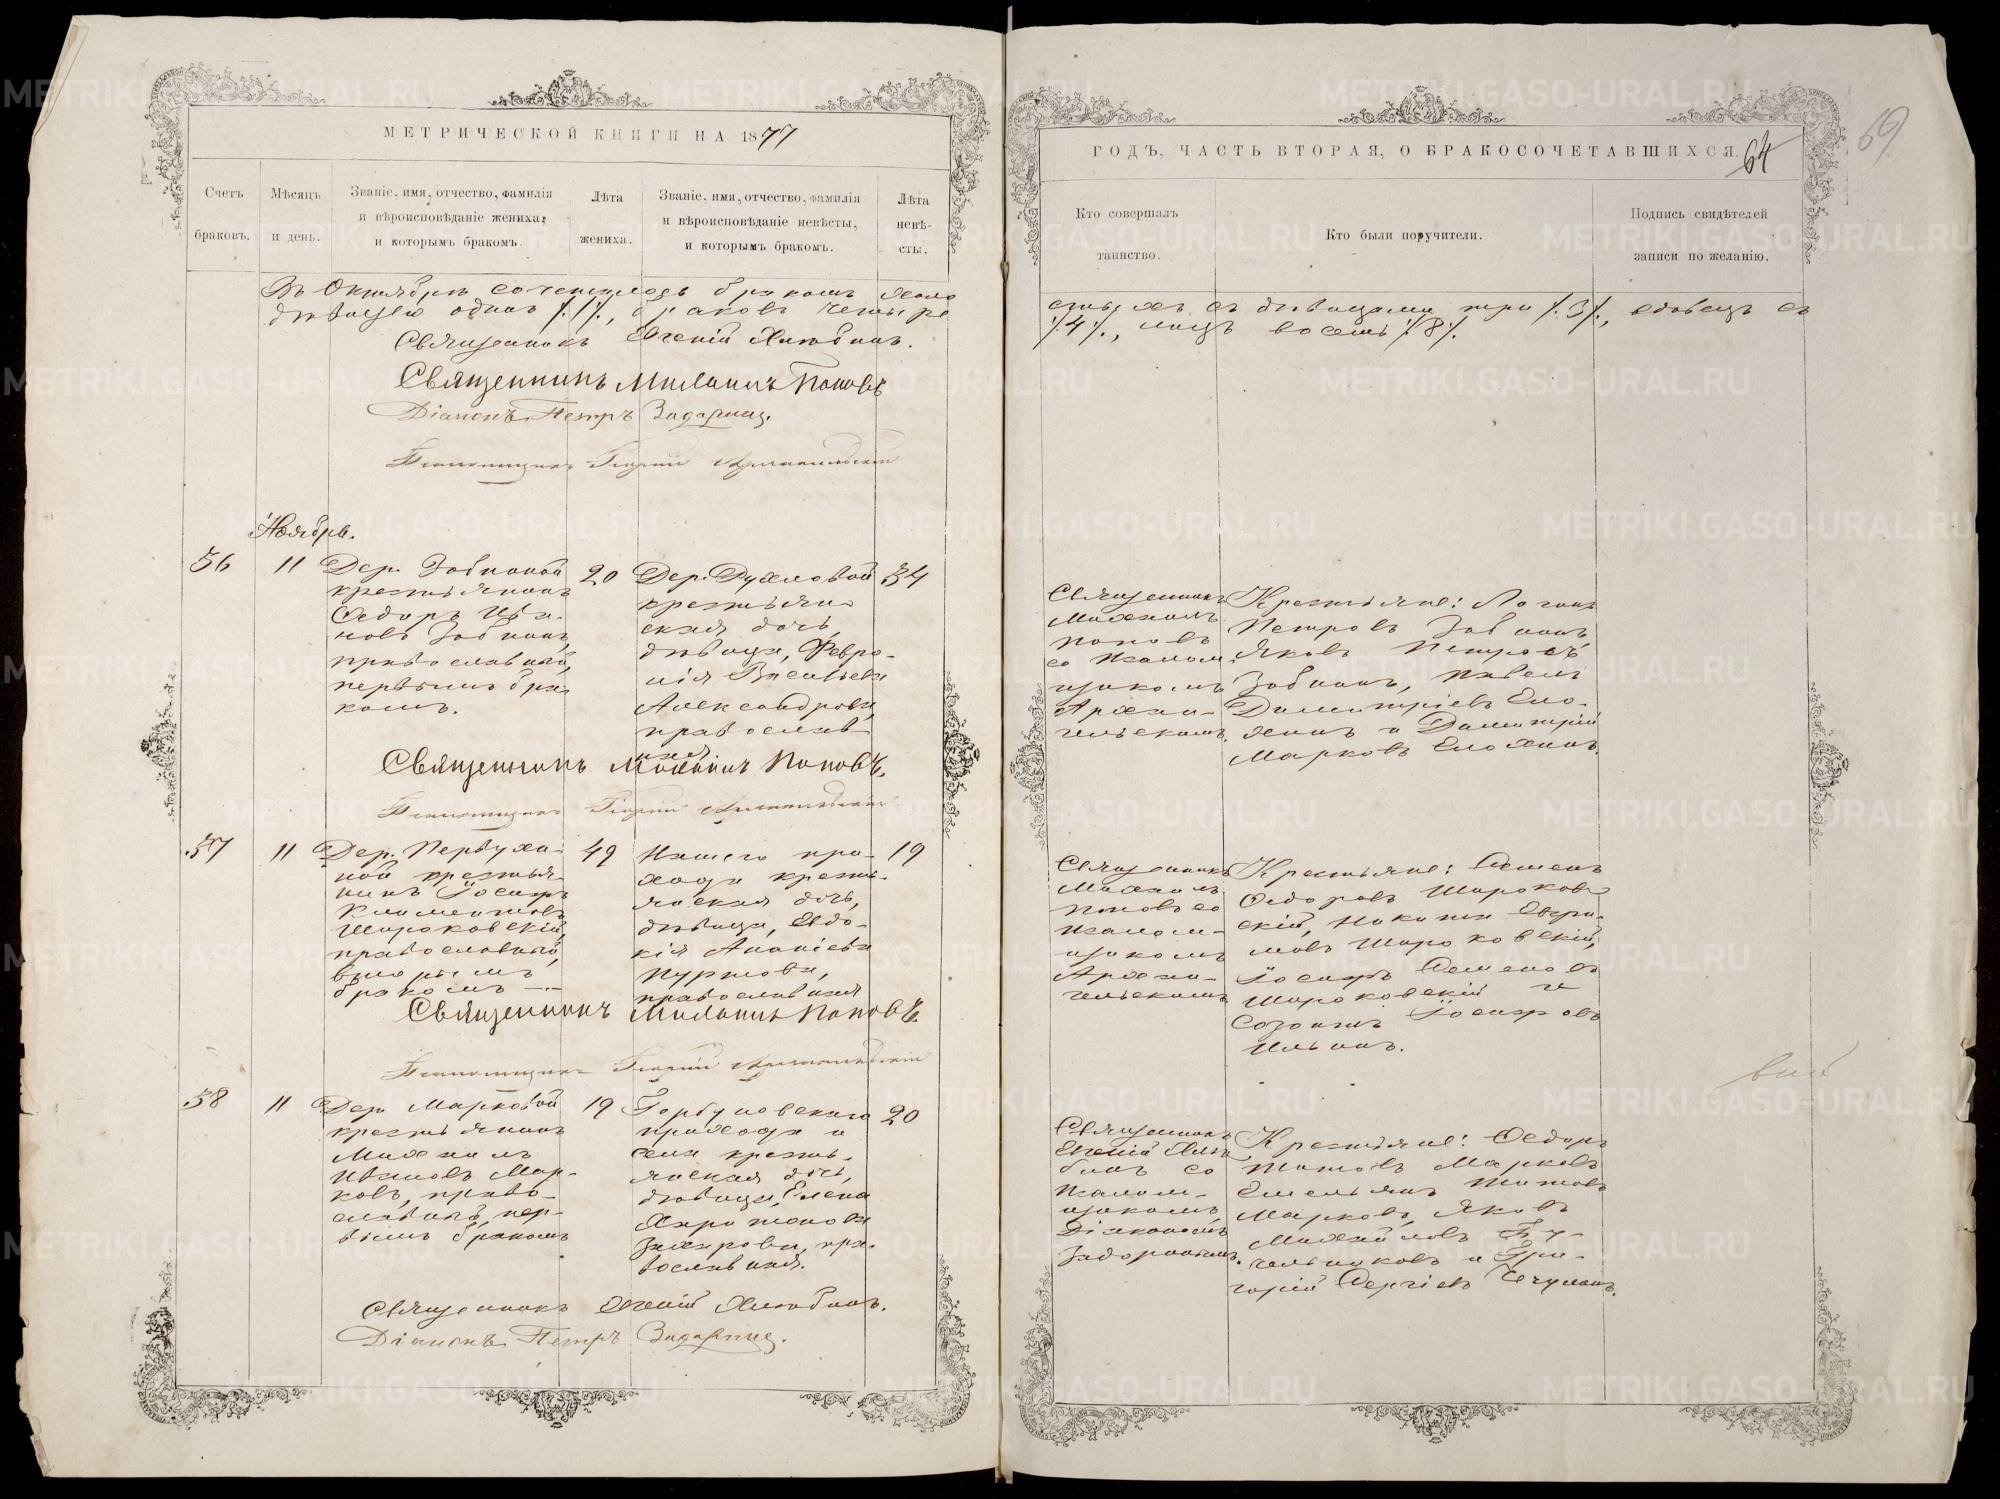 МЕТРИЧЕСКОЙ КНИГИ НА 1877
Счетъ браковъ.
Мѣсяцъ и день.
Званіе, имя, отчество, фамилія
и вѣроисповѣданіе жениха,
и которымъ бракомъ.
Лѣта жениха.
Званіе, имя, отчество, фамилія
и вѣроисповѣданіе невѣсты,
и которымъ бракомъ.
Лѣта невѣ-
сты.
Въ Октябрѣ сочеталось бракомъ холо
дѣвицею одинъ /.1/., браковъ четыре
Священникъ Евгеній Хлюбинъ.
Священникъ Михаилъ Поповъ
Діаконъ Петръ Задоринъ.
Псаломщикъ Георгій
Ноябрь.
36
11
Дер. Зобниной
крестьянинъ
Ѳедоръ Ива-
новъ Зобнинъ,
православный,
первымъ бра-
комъ.
20
Дер. Духловой
крестьян-
ская дочь,
дѣвица, Февро-
нія Васильева
Александрова,
православ-
ная.
34
Священникъ Михаилъ Поповъ.
Псаломщикъ Георгій
37
11
Дер. Первухи-
ной крестья-
нинъ Іосифъ
Климентовъ
Широковскій,
православный,
вторымъ
бракомъ
49
Нашего при-
хода кресть-
янская дочь,
дѣвица, Евдо-
кія Ананіева
Пуртова,
православная
19
Священникъ Михаилъ Поповъ.
Псаломщикъ Георгій
38
11
Дер. Марковой
крестьянинъ
Михаилъ
Ивановъ Мар-
ковъ, право-
славный, пер-
вымъ бракомъ
19
Горбуновскаго
прихода и
села кресть-
янская дочь,
дѣвица, Елена
Харитонова
Захарова, пра-
вославная.
20
Священникъ Евгеній Хлюбинъ.
Діаконъ Петръ Задоринъ.
ГОДЪ, ЧАСТЬ ВТОРАЯ, О БРАКОСОЧЕТАВШИХСЯ.
64
69
Кто совершалъ
таинство.
Кто были поручители.
Подпись свидѣтелей
записи по желанію.
стыхъ съ дѣвицами три /.3/., вдовецъ съ
/.4/., лицъ восемь /.8/.
Священникъ
Михаилъ
Поповъ
съ Псалом-
щикомъ
Архан-
гельскимъ.
Крестьяне: Логинъ
Петровъ Зобнинъ
Яковъ Петровъ
Зобнинъ, Павелъ
Димитріевъ Ело-
хинъ и Димитрій
Марковъ Елохинъ.
Священникъ
Михаилъ
Поповъ со
Псалом-
щикомъ
Архан-
гельскимъ
Крестьяне: Семенъ
Ѳедоровъ Широков-
скій, Никита Ефри-
мовъ Широковскій,
Іосифъ Семеновъ
Широковскій и
Созонтъ Іосифовъ
Ильинъ.
Священникъ
Евгеній Хлю-
бинъ со
Псалом-
щикомъ
Діакономъ
Задоринымъ.
Крестьяне: Ѳедоръ
Титовъ Марковъ
Емельянъ Титовъ
Марковъ, Яковъ
Михайловъ Бу-
тельниковъ и Гри-
горій Сергіевъ Чечулинъ.
METRIKI.GASO-URAL.RU